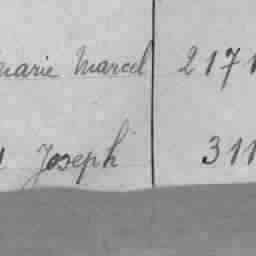 Marie Marcel 2171
Joseph 311